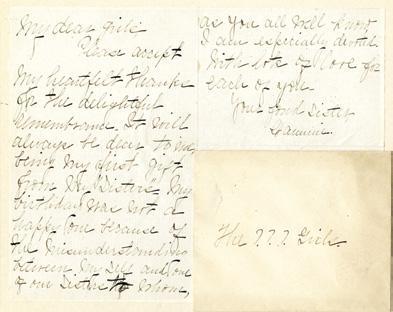 My dear girls
Please accept
My heartfelt thanks
for the delightful
remembrance. It will
always be dear to me,
being my first gift
from my "Sisters". My
birthday was not a
happy one because of
the misunderstanding
between myself and one
of our Sisters to whom,
as you all well know
I am especially devoted.
With lots of love for
each of you
Your fond Sister
The ? ? ? Girls